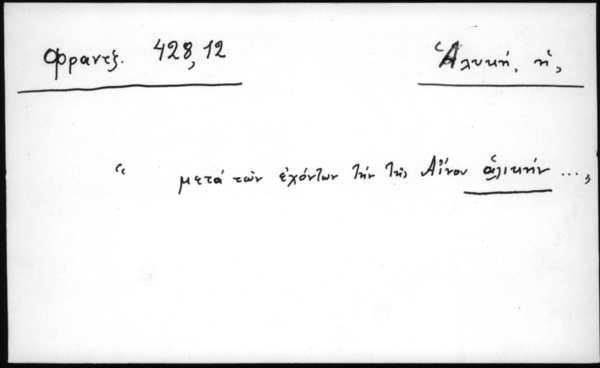 Φραντζ. 428,12
Ἁλυκή, ἡ,
“ μετά τῶν ἐχόντων τήν τῆς Αἴνου ἁλικήν ...,